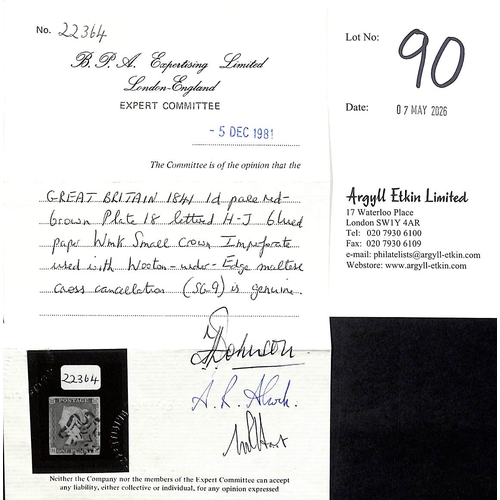 No. 22364
B. P. A. Expertising Limited
London-England
EXPERT COMMITTEE
- 5 DEC 1981
The Committee is of the opinion that the
GREAT BRITAIN 1841 1d pale red-
brown Plate 18 lettered H-J blued
paper Wmk Small Crown Imperforate
used with Wooton-under-Edge maltese
cross cancellation (SG 9) is genuine.
Johnson
A. R. Alwick.
22364
POSTAGE
Neither the Company nor the members of the Expert Committee can accept
any liability, either collective or individual, for any opinion expressed
Lot No: 90
Date: 07 MAY 2026
Argyll Etkin Limited
17 Waterloo Place
London SW1Y 4AR
Tel: 020 7930 6100
Fax: 020 7930 6109
e-mail: philatelists@argyll-etkin.com
Webstore: www.argyll-etkin.com